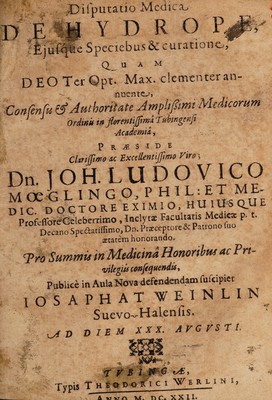 Disputatio Medica
DE HYDROPE,
Ejusque Speciebus & curatione,
QUAM
DEO Ter Opt. Max. clementer an-
nuente,
Consensu & Authoritate Amplißimi Medicorum
Ordinis in florentissimâ Tubingensi
Academiâ,
PRÆSIDE
Clarissimo ac Excellentissimo Viro,
Dn. JOH. LUDOVICO
MŒGLINGO, PHIL: ET ME-
DIC. DOCTORE EXIMIO, HUIUSQUE
Professore Celeberrimo, Inclytæ Facultatis Medicæ p. t.
Decano Spectatissimo, Dn. Præceptore & Patrono suo
ætatèm honorando.
Pro Summis in Medicinâ Honoribus ac Pri-
vilegiis consequendis,
Publicè in Aula Nova defendendam suscipiet
IOSAPHAT WEINLIN
Suevo-Halensis.
AD DIEM XXX. AVGVSTI.
TVBINGÆ,
Typis THEODORICI WERLINI,
ANNO M. DC. XXII.